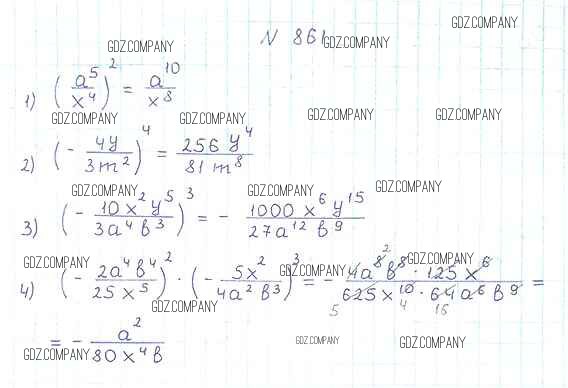 GDZ.COMPANY
N 861
GDZ.COMPANY GDZ.COMPANY
1) (a⁵/x⁴)² = a¹⁰/x⁸
GDZ.COMPANY GDZ.COMPANY GDZ.COMPANY GDZ.COMPANY
2) (- 4y/3m²)⁴ = 256 y⁴/81 m⁸
GDZ.COMPANY GDZ.COMPANY GDZ.COMPANY
3) (- 10x²y⁵/3a⁴b³)³ = - 1000 x⁶ y¹⁵/27a¹² b⁹
GDZ.COMPANY GDZ.COMPANY
4) (- 2a⁴b⁴/25 x⁵)² · (- 5x²/4a²b³)³ = - 4a⁸ ² b⁸ · 125 x⁶/625x¹⁰ · 64 a⁶ b⁹ =
5 4 16
GDZ.COMPANY
= - a²/80 x⁴ b
GDZ.COMPANY GDZ.COMPANY GDZ.COMPANY